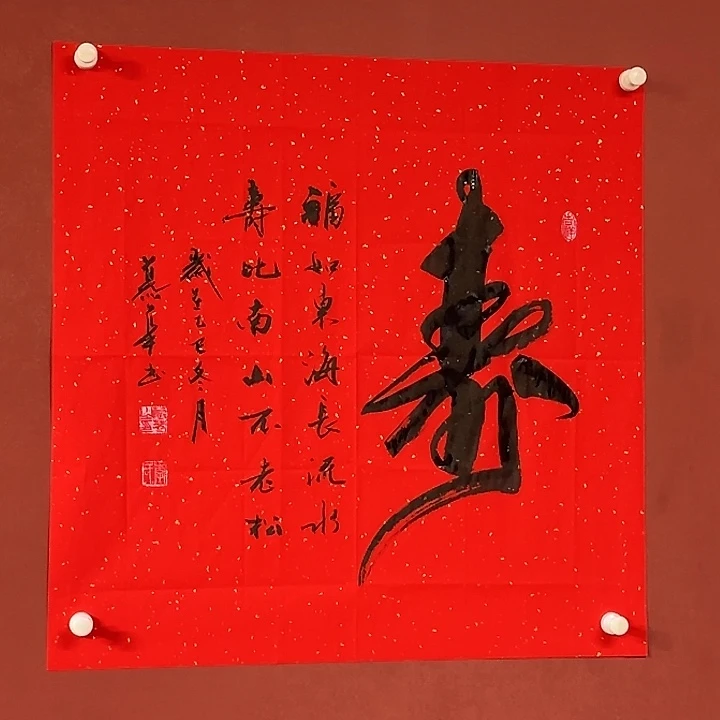 壽
福如東海長流水
壽比南山不老松
歲在乙巳冬月
慕華书